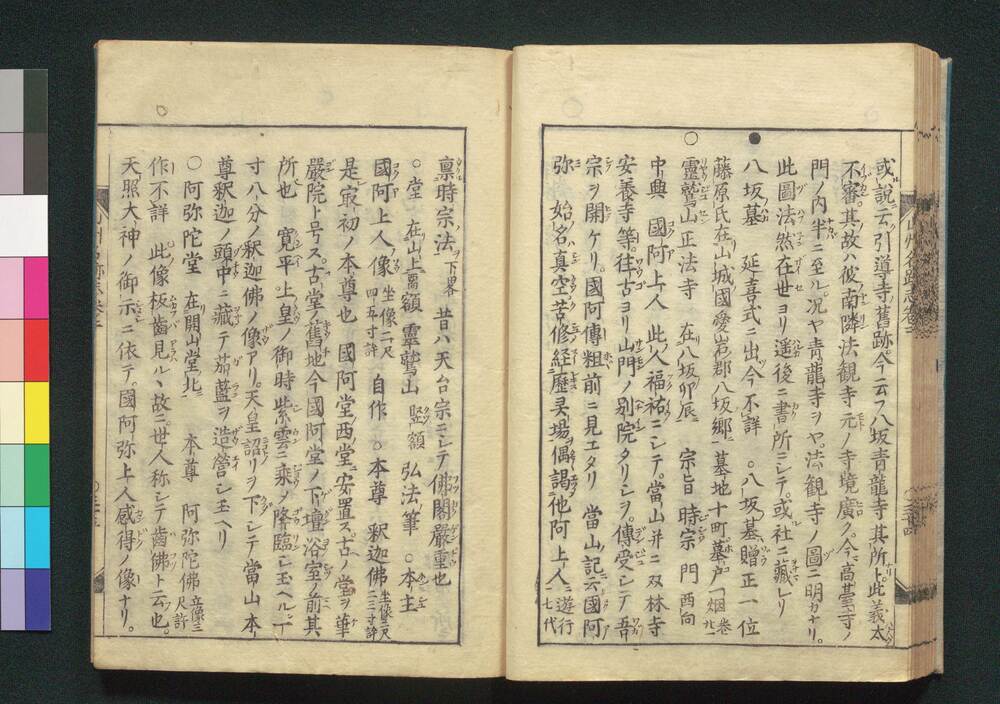 或説云引導寺舊跡今云フ八坂青龍寺其所ト此義太
不審其故ハ彼南隣法観寺元ノ寺境廣ク今高臺寺ノ
門ノ内半ニ至ル況ヤ青龍寺ヲヤ法観寺ノ圖ニ明カナリ
此圖法然在世ヨリ遙後ニ書所ニシテ或社ニ藏レリ
●八坂墓 延喜式ニ出今不詳 ○八坂墓贈正一位
藤原氏在山城國愛宕郡八坂郷墓地十町墓戸一烟
○靈鷲山正法寺 在八坂卯辰 宗旨時宗 門西向
中興 國阿上人 此人福祐ニシテ當山并ニ双林寺
安養寺等往古ヨリ山門ノ別院タリシヲ傳受シテ吾
宗ヲ開ケリ國阿傳粗前ニ見エタリ 當山記云國阿
弥 始名真空苦修経歴灵場偶謁他阿上人 遊行七代
禀時宗法 下畧 昔ハ天台宗ニシテ佛閣嚴重也
○堂 在山上南 額 靈鷲山 竪額 弘法筆 ○本主
國阿上人像 坐像二尺四五寸許 自作 ○本尊 釈迦佛 坐像二尺二三寸許
是寂初ノ本尊也 國阿堂西ノ堂ニ安置ス古ノ堂ヲ華
嚴院ト号ス古堂ノ舊地今國阿堂ノ下壇浴室ノ前其
所也 寛平上皇ノ御時紫雲ニ乘メ降臨シ玉ヘル一
寸八分ノ釈迦佛ノ像アリ天皇詔リヲ下シテ當山本
尊釈迦ノ頭中ニ藏テ茄藍ヲ造營シ玉ヘリ
○阿弥陀堂 在開山堂北 本尊 阿弥陀佛 立像三尺許
作不詳 此像板齒見ルヽ故ニ世人称シテ齒佛ト云也
天照大神ノ御示ニ依テ國阿弥上人感得ノ像ナリ